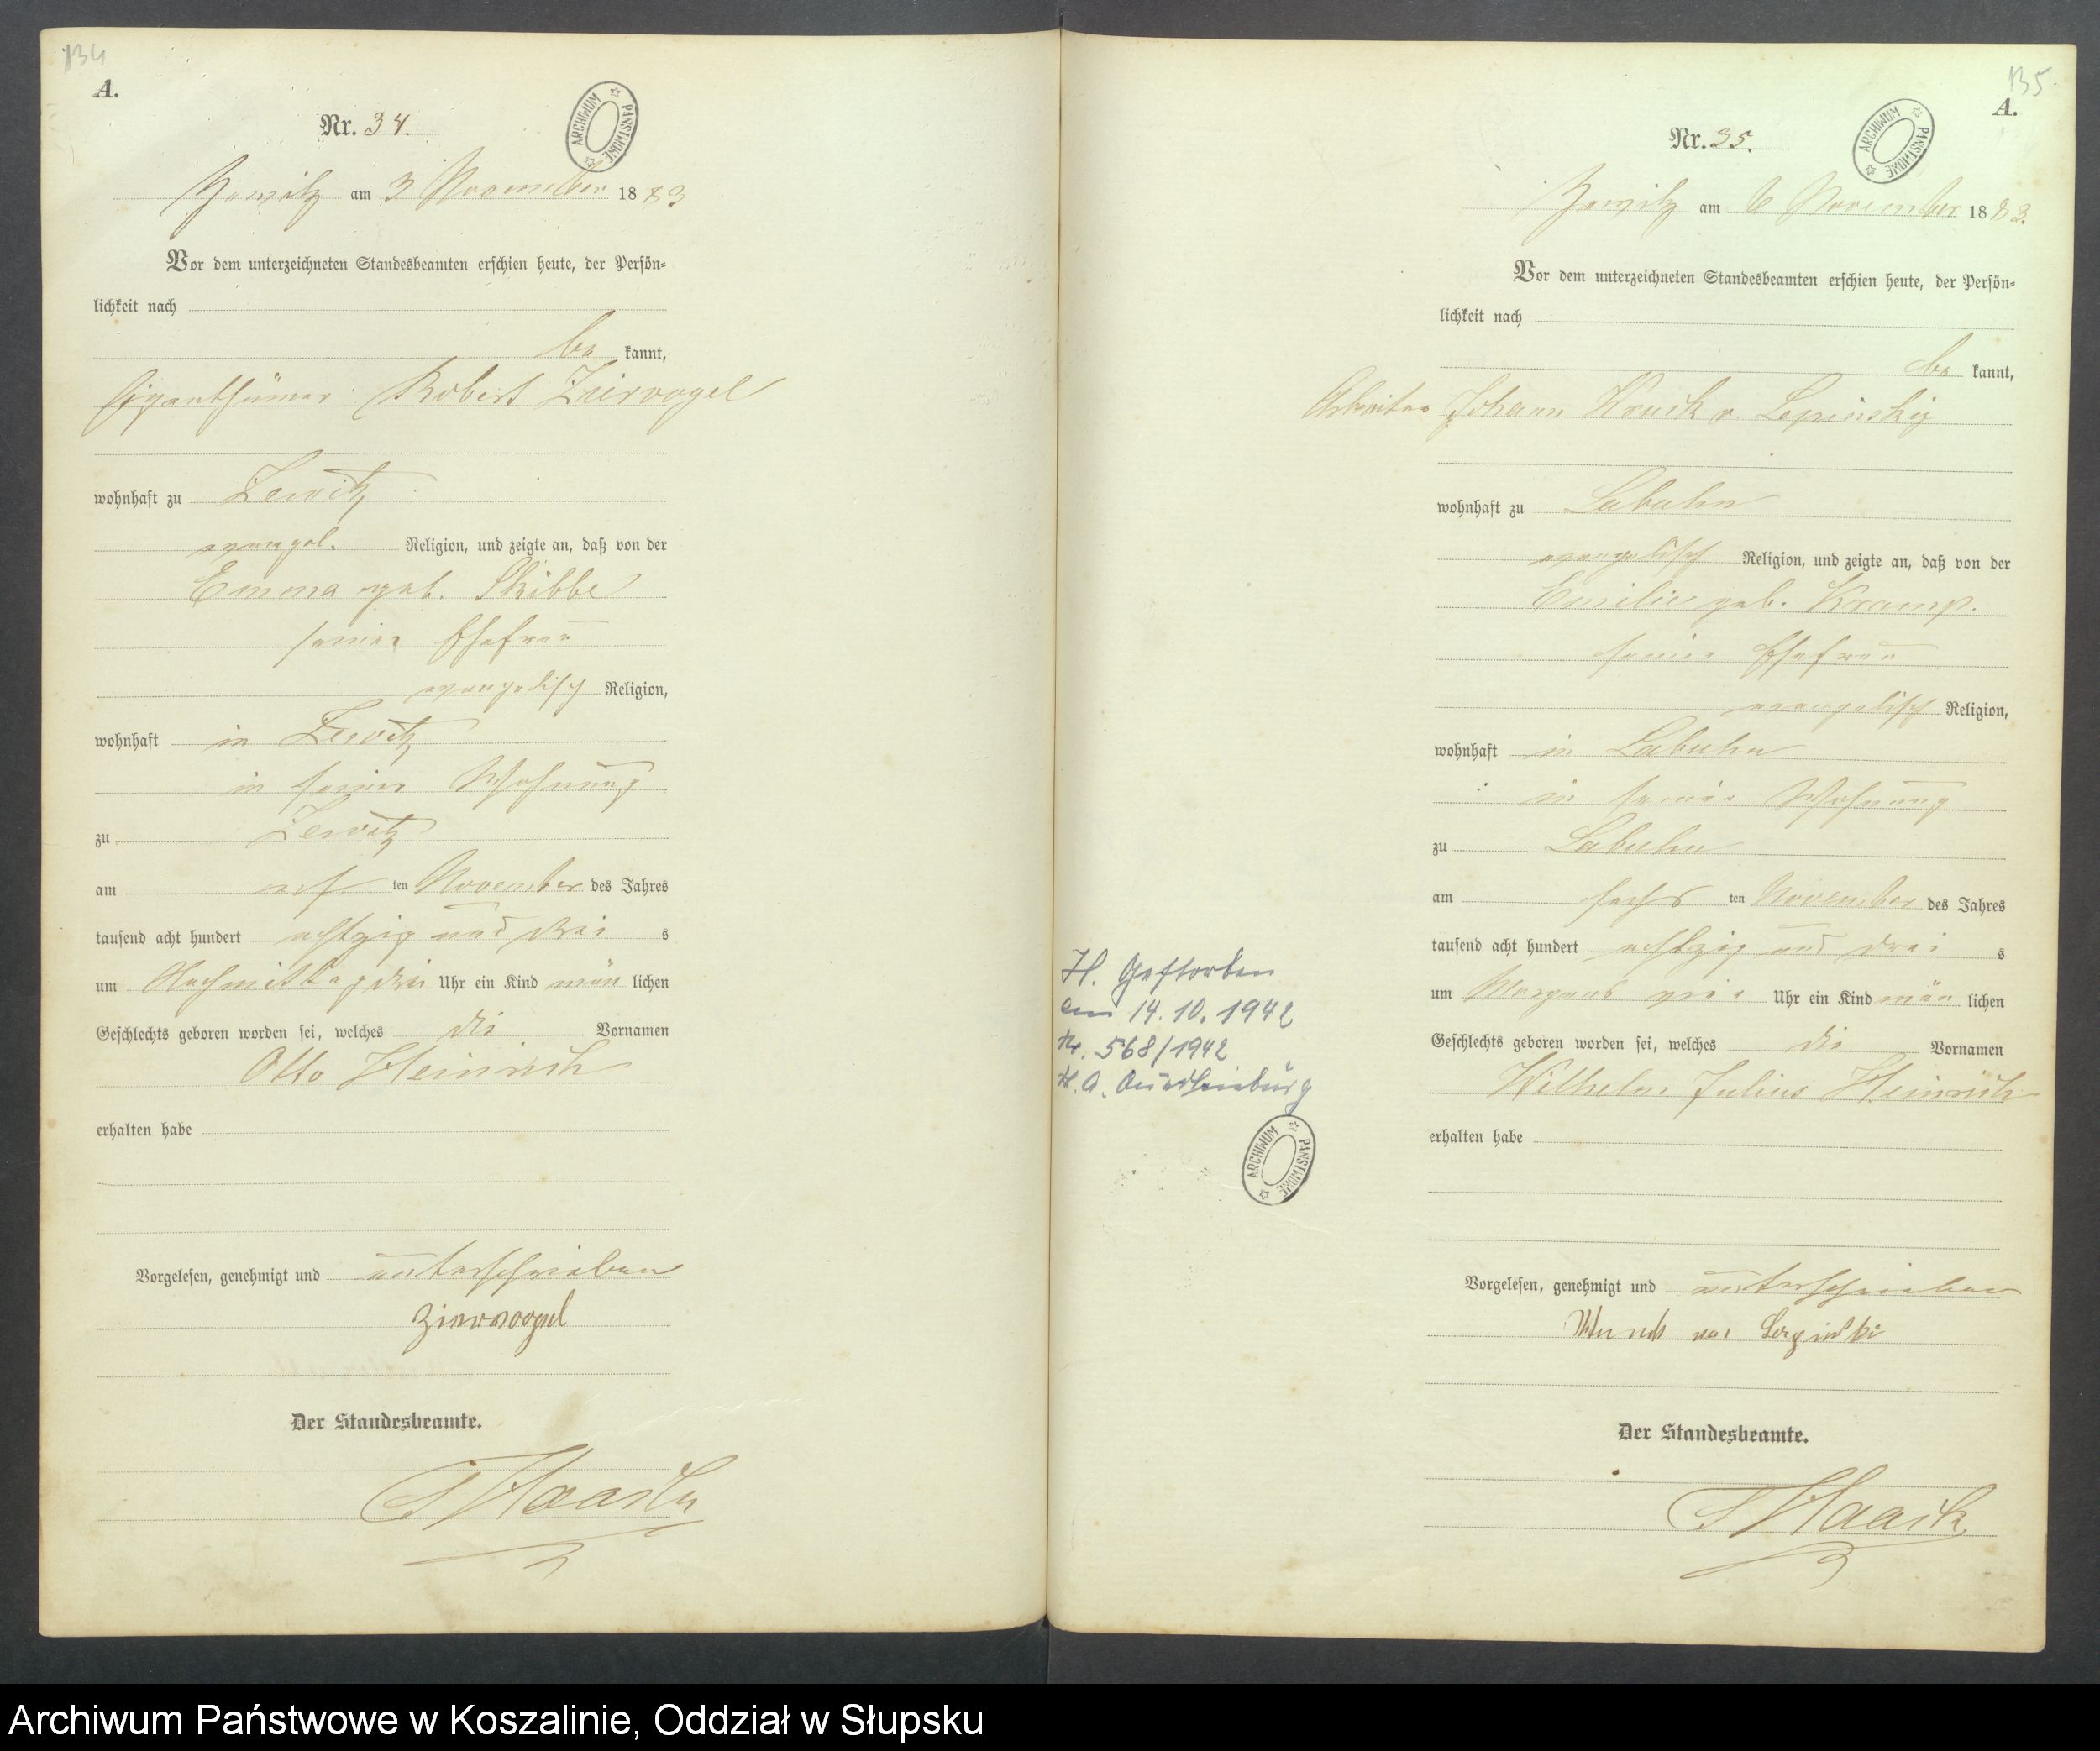 134
A.
Nr. 34.
ARCHIWUM PAŃSTWOWE
Zewitz am 3 November 1883
Vor dem unterzeichneten Standesbeamten erschien heute, der Persön-
lichkeit nach
be kannt,
Eigenthümer Robert Ziervogel
wohnhaft zu Zewitz
evangel. Religion, und zeigte an, daß von der
Emma geb. Skibbe
seiner Ehefrau
evangelisch Religion,
wohnhaft in Zewitz
in seiner Wohnung
zu Zewitz
am ten November des Jahres
tausend acht hundert achtzig und drei s
um Nachmittag drei Uhr ein Kind män lichen
Geschlechts geboren worden sei, welches die Vornamen
Otto Heinrich
erhalten habe
Vorgelesen, genehmigt und unterschrieben
Ziervogel
Der Standesbeamte.
Haack
135
A.
Nr. 35.
ARCHIWUM PAŃSTWOWE
Zewitz am 6 November 1883.
Vor dem unterzeichneten Standesbeamten erschien heute, der Persön-
lichkeit nach
be kannt,
Arbeiter Johann Wruck v. Lepinskij
wohnhaft zu Labuhn
evangelisch Religion, und zeigte an, daß von der
Emilie geb. Kramp.
seiner Ehefrau
evangelisch Religion,
wohnhaft in Labuhn
in seiner Wohnung
zu Labuhn
am sechs ten November des Jahres
tausend acht hundert achtzig und drei s
um Morgens vier Uhr ein Kind män lichen
Geschlechts geboren worden sei, welches die Vornamen
Wilhelm Julius Heinrich
erhalten habe
Vorgelesen, genehmigt und unterschrieben
Der Standesbeamte.
Haack
H. Gestorben
am 14.10.1942
Nr. 568/1942
Quedlinburg
ARCHIWUM PAŃSTWOWE
Archiwum Państwowe w Koszalinie, Oddział w Słupsku